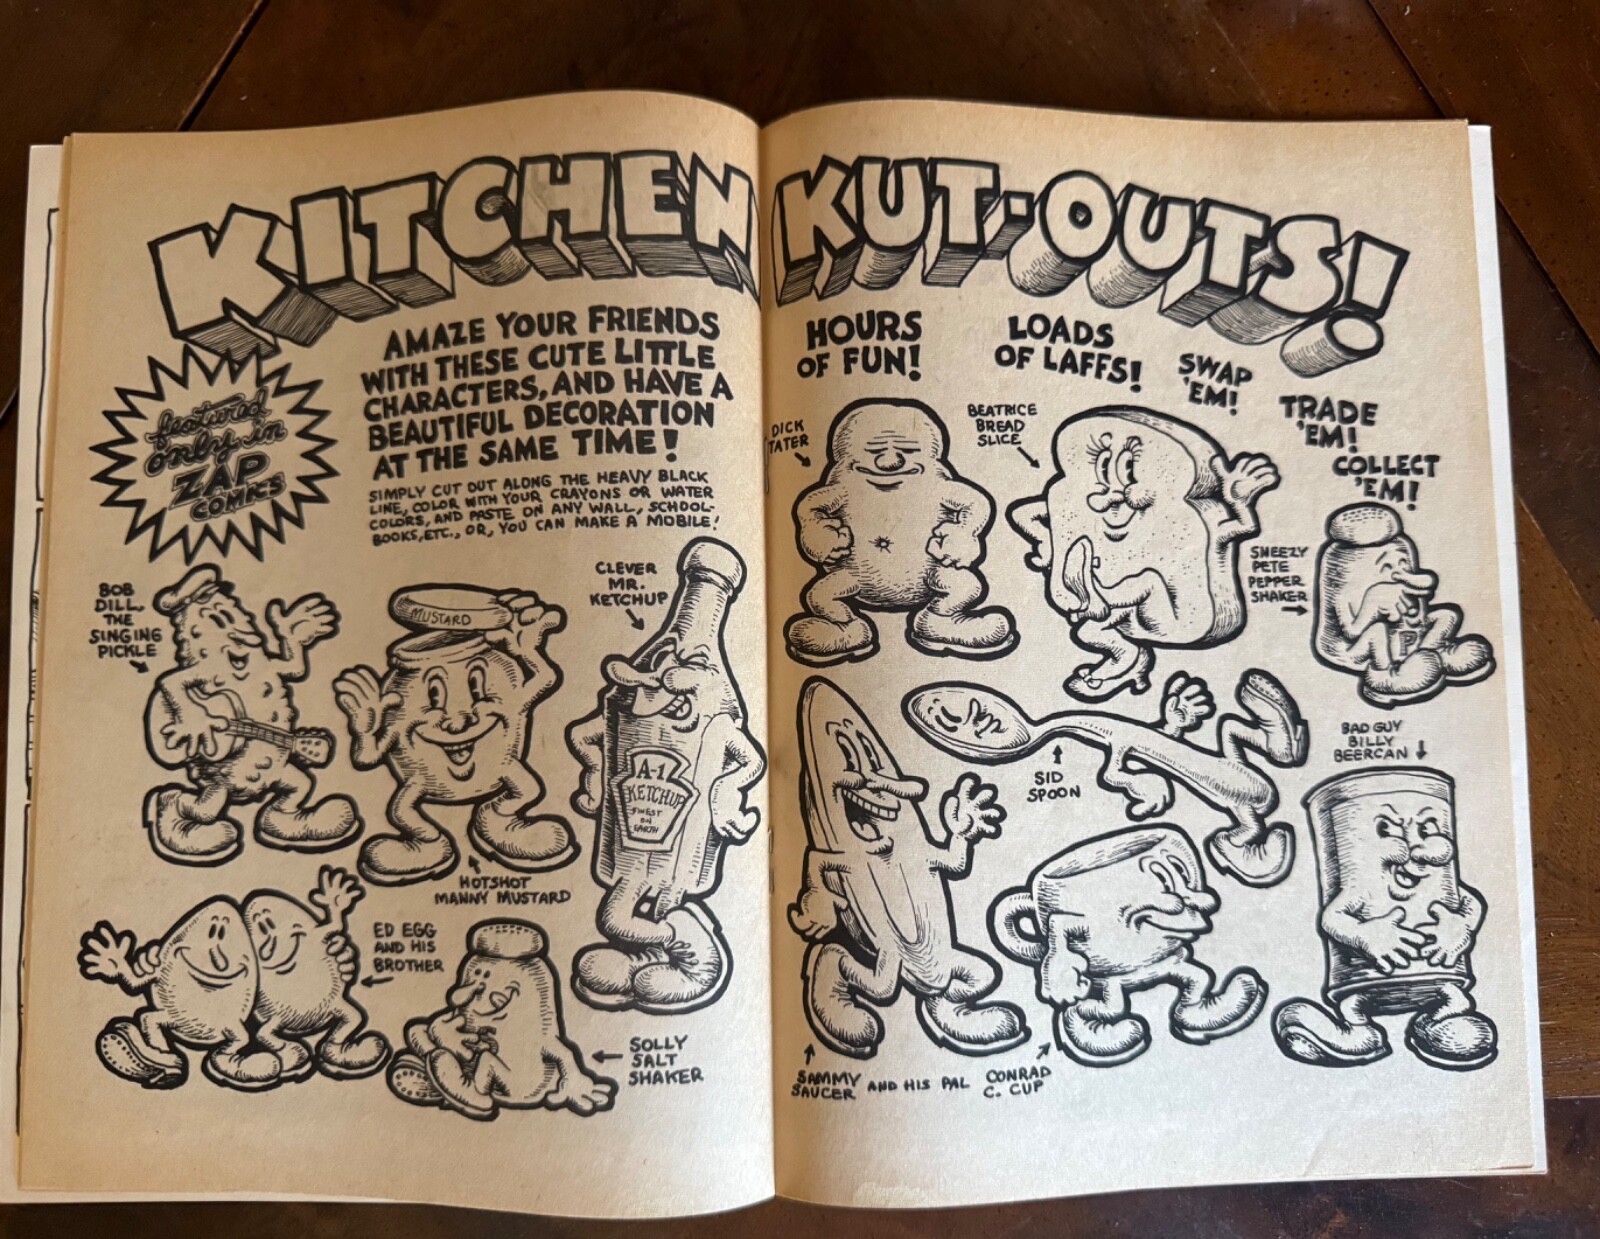 KITCHEN KUT-OUTS!
featured
only in
ZAP
COMICS
AMAZE YOUR FRIENDS
WITH THESE CUTE LITTLE
CHARACTERS, AND HAVE A
BEAUTIFUL DECORATION
AT THE SAME TIME!
SIMPLY CUT OUT ALONG THE HEAVY BLACK
LINE, COLOR WITH YOUR CRAYONS OR WATER
COLORS, AND PASTE ON ANY WALL, SCHOOL-
BOOKS, ETC., OR, YOU CAN MAKE A MOBILE!
BOB
DILL,
THE
SINGING
PICKLE
MUSTARD
HOTSHOT
MANNY MUSTARD
CLEVER
MR.
KETCHUP
A-1
KETCHUP
FINEST
ON
EARTH
ED EGG
AND HIS
BROTHER
SOLLY
SALT
SHAKER
HOURS
OF FUN!
LOADS
OF LAFFS!
SWAP
'EM!
TRADE
'EM!
COLLECT
'EM!
DICK
TATER
BEATRICE
BREAD
SLICE
SNEEZY
PETE
PEPPER
SHAKER
P
SID
SPOON
BAD GUY
BILLY
BEERCAN
SAMMY
SAUCER
AND HIS PAL
CONRAD
C. CUP